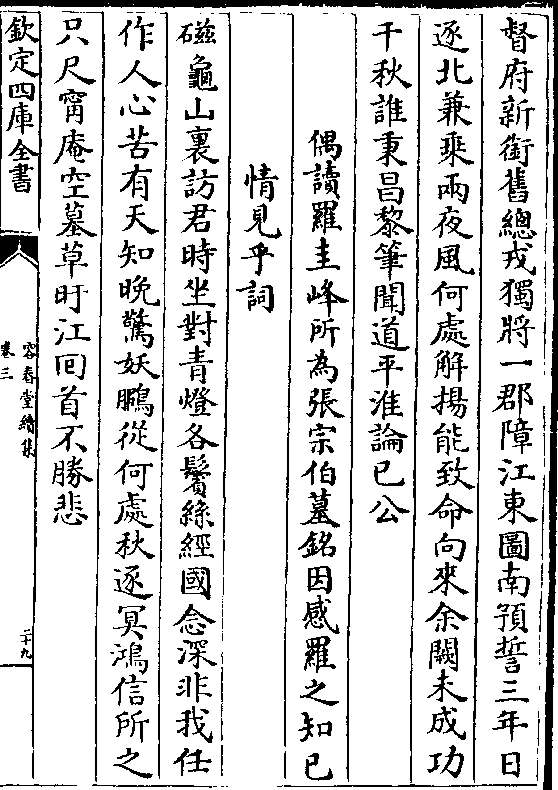 督府新銜舊總戎獨將一郡障江東圖南預誓三年日
逐北兼乘兩夜風何處解揚能致命向來余闕未成功
千秋誰秉昌黎筆聞道平淮論已公
偶讀羅圭峰所為張宗伯墓銘因感羅之知已
情見乎詞
磁龜山裏訪君時坐對青燈各鬢絲經國念深非我任
作人心苦有天知晩驚妖鵩從何處秋逐冥鴻信所之
只尺甯庵空墓草盱江囘首不勝悲
欽定四庫全書
容春堂續集
卷三
二十九